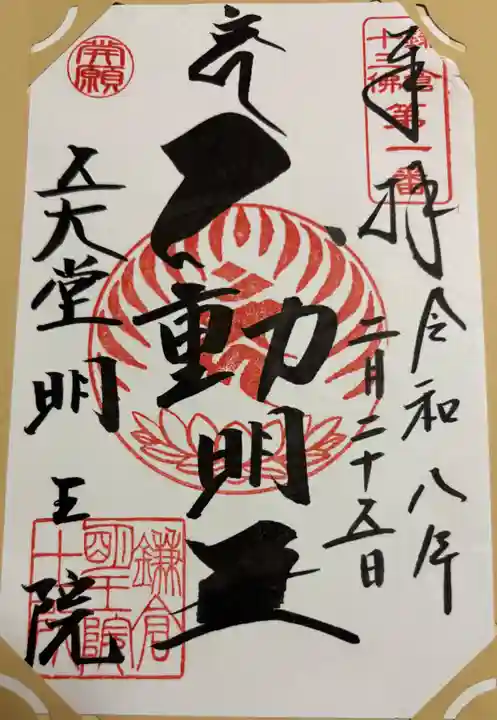 奉拝
令和八年
二月二十五日
不動明王
五大堂明王院
鎌倉
十三佛
第一番
発願
鎌倉
明王院